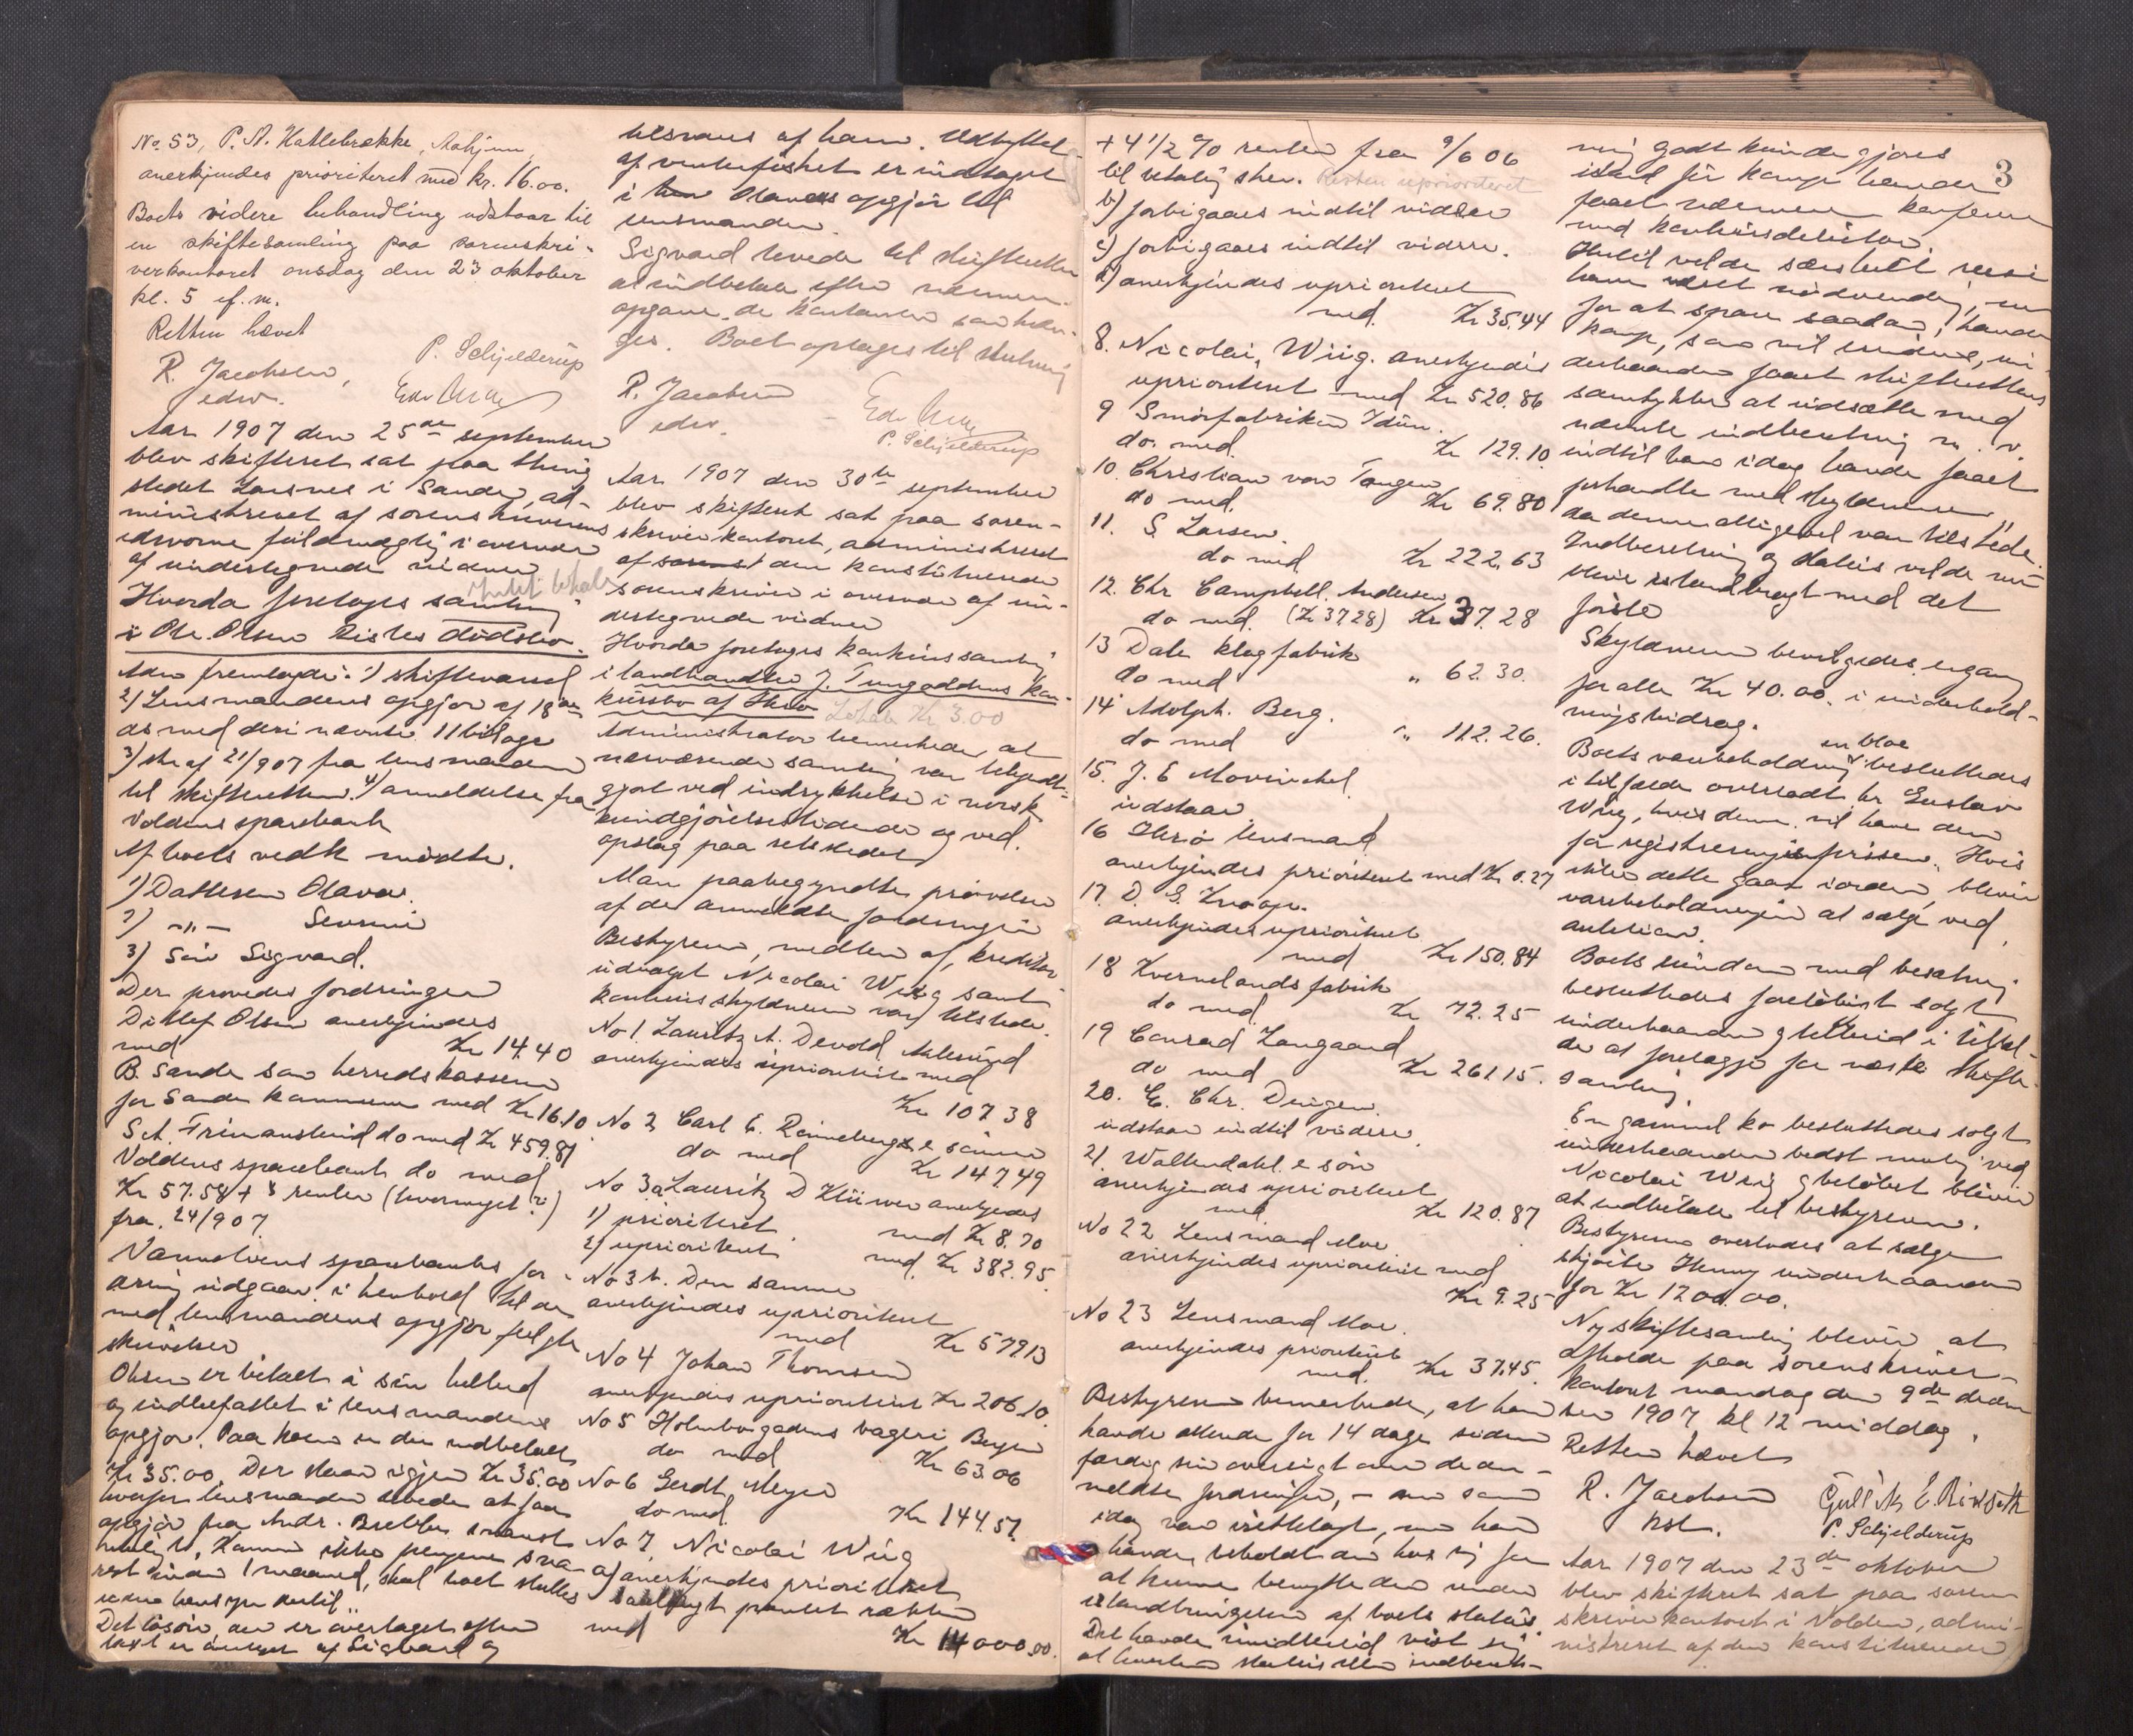 No. 53, P. A. Hatlebrække,
anerkjendes prioriteret med kr. 16.00.
Boets videre behandling udstaar til
en skiftesamling paa sorenskri-
verkontoret onsdag den 23 oktober
kl. 5 ef. m.
Retten hævet
R. Jacobsen, P. Schjelderup
edsv.
Aar 1907 den 25de september
blev skifteret sat paa thing
stedet Larsnes i Sande, ad-
ministreret af sorenskriverens
edsvorne fuldmægtig i overvær
af undertegnede vidner
Hvorda foretoges samling
i Ole Olsen Ristes dødsbo.
Adm fremlagde: 1) skiftevarsel
2) Lensmandens opgjør af 18de
ds med deri nævnte 11 bilage
3) skr af 21/9 07 fra lensmanden
til skifteretten. 4) anmeldelse fra
Voldens sparebank
Af boets vedk mødte.
1) Datteren Olava.
2) -"-
3) Søn Sigvard.
Der prøvedes fordringer
Ditlef Olsen anerkjendes
med Kr 14.40
B. Sande som herredskasserer
for Sande kommune med Kr 16.10
do med Kr 459.81
Voldens sparebank do med
Kr 57.58 + renter (hvormeget?)
fra 24/9 07.
sparebanks for-
dring udgaar i henhold til de
med lensmandens opgjør fulgte
skrivelser
Olsen er betalt i sin helhed
og indbefattet i lensmandens
opgjør. Paa koen er der indbetalt
Kr 35.00. Der staar igjen Kr 35.00
hvorfor lensmanden at faa
opgjør fra Andr. snarest
mulig. Kommer ikke pengene
inden 1 maaned, skal boet sluttes
uden hensyn hertil.
Det løsøre, der er overtaget efter
taxt er af Sigvard og
af ham. Udbyttet
af vinterfisket er indtaget
i Olavas opgjør til
lensmanden.
Sigvard lovede til skifteretten
at indbetale efter nærmere
opgave de
Boet optages til slutning
R. Jacobsen
edsv. P. Schjelderup
Aar 1907 den 30te september
blev skifteret sat paa soren-
skriverkontoret, administreret
af den konstituerede
sorenskriver i overvær af un-
dertegnede vidner
Hvorda foretoges konkurssamling
i landhandler J. Tungoddens kon-
kursbo af Herø Kr 3.00
Administrator bemerkede, at
nærværende samling var bekjendt-
gjort ved indrykkelse i norsk
kundgjørelsestidende og ved
opslag paa retsstedet
Man paabegyndte prøvelsen
af de anmeldte fordringer
Bestyreren, medlem af kreditor
udvalget Nicolai Wiig samt
konkursskyldneren var tilstede.
No 1 Lauritz A. Devold Aalesund
anerkjendes uprioriteret med
Kr 107 38
No 2 Carl E. Rønneberg & sønner
do med Kr 147 49
No 3a Lauritz D Klüwer anerkjendes
1) prioriteret med Kr 8.70
2) uprioriteret med Kr 382.95.
No 3 b. Den samme
anerkjendes uprioriteret
med Kr 579 13
No 4 Johan Thomsen
anerkjendes uprioriteret Kr 206.10.
No 5 Holmbogadens bageri Bergen
do med Kr 63.06
No 6 Gerdt Meyer
do med. Kr 144.57
No 7. Nicolai Wiig
a) anerkjendes prioriteret
pantet rækker
med Kr 14000.00.
3
+ 4 1/2 % renter fra 9/6 06
til betaling sker. Resten uprioriteret
b) forbigaaes indtil videre
c) forbigaaes indtil videre.
d) anerkjendes uprioriteret
med. Kr 35.44
8. Nicolai Wiig. anerkjendes
uprioriteret med Kr 520.86
9 Smørfabriken Idun.
do. med. Kr 129.10.
10. Christian von Tangen
do med. Kr 69.80
11. S. Larsen.
do med Kr 222.63
12. Chr Campbell Andersen
do med. (Kr 37 28) Kr 37.28
13 Dale klæfabrik
do med " 62.30.
14 Adolph. Berg.
do med " 112.26.
15. J. E Mowinckel
udstaar
16 Herø lensmand
anerkjendes prioriteret med Kr 0.27
17. D. S. Knoop.
anerkjendes uprioriteret
med Kr 150.84
18 Kvernelands fabrik
do med. Kr 72.25
19 Conrad Langaard
do med Kr 261 15.
20. E. Chr. Dengen.
udstaar indtil videre.
21. Wallendahl & søn
anerkjendes uprioriteret
med Kr 120.87
No 22 Lensmand Moe
anerkjendes uprioriteret med
Kr 9.25
No 23 Lensmand Moe.
anerkjendes prioriteret
med. Kr 37.45.
Bestyreren bemerkede, at han
havde allerede for 14 dage siden
færdig sin oversigt over de an-
meldte fordringer, – som
idag var fremlagt, men han
havde beholdt den hos sig for
at kunne benytte den under
istandbringelsen af boets status.
Det havde imidlertid vist sig,
at hverken status eller indberet-
ning godt kunde gjøres
istand før kamp havde
faaet nærmere konferere
med konkursdebitor.
Hertil vilde særskilt reise
have været nødvendig, men
for at spare saadan, havde
kamp, som vil erindres, un-
derhaanden faaet skifterettens
samtykke til at udsætte med
nævnte indberetning m. v.
indtil han idag havde faaet
forhandle med skyldneren,
da denne alligevel var tilstede.
Indberetning og status vilde nu
blive istandbragt med det
første
Skyldneren bevilgedes engang
for alle Kr 40.00. i underhold-
ningsbidrag.
Boets varebeholdning en bloc besluttedes
i tilfælde overladt hr Gustav
Wiig, hvis denne vil have dem
for registreringsprisen. Hvis
ikke dette gaar iorden, bliver
varebeholdningen at sælge ved
auktion.
Boets eiendom med besætning
besluttedes foreløbigt solgt
underhaanden
de at forelægge for næste skifte-
samling.
En gammel ko besluttedes solgt
underhaanden bedst mulig ved
Nicolai Wiig, beløbet bliver
at indbetale til bestyreren.
Bestyreren overlodes at sælge
skjøite Henny underhaanden
for Kr 1200.00.
Ny skiftesamling bliver at
afholde paa sorenskriver-
kontoret mandag den 9de decem
ber 1907 kl 12 middag.
Retten hævet
R. Jacobsen
kst. P. Schjelderup
Aar 1907 den 23de oktober
blev skifteret sat paa soren
skriverkontoret i Volden, admi-
nistreret af den konstituerede